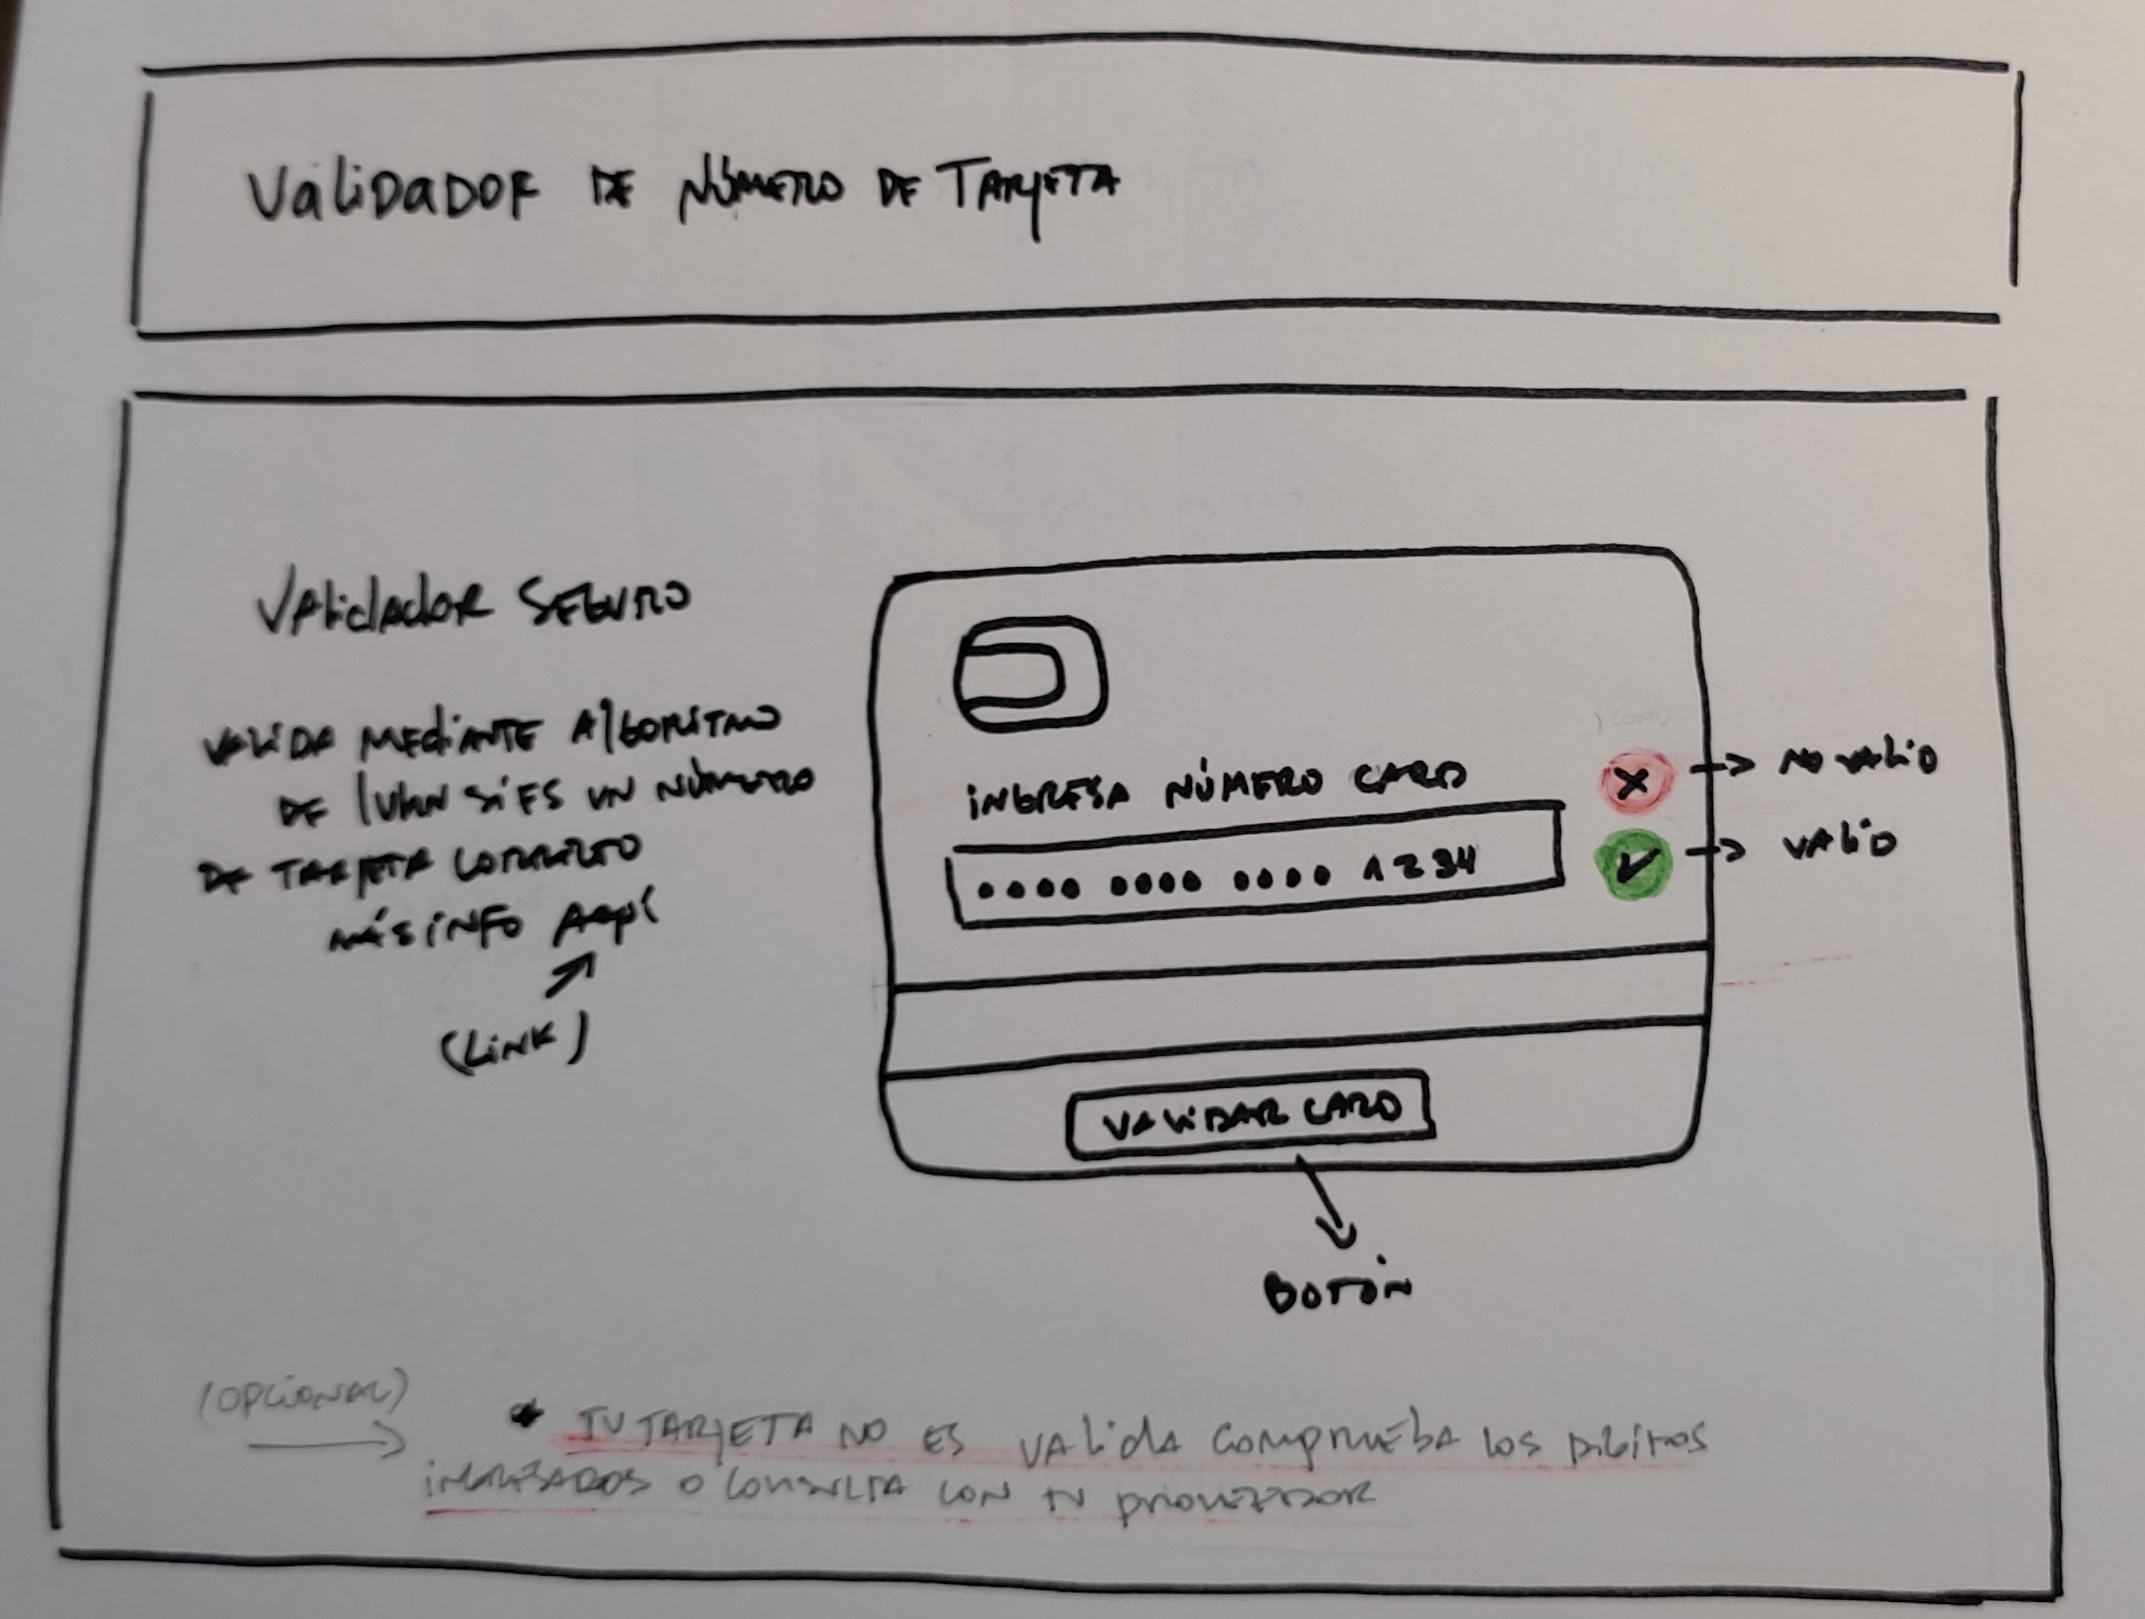 Validador de Número de Tarjeta
Validador Seguro
Valida mediante algoritmo
de luhn si es un número
de tarjeta correcto
más info Aquí
(Link)
Ingresa Número Card
•••• •••• •••• 1234
X → No valio
✓ → valio
Validar Card
Botón
(opcional)
* Tu tarjeta no es valida comprueba los digitos
ingresados o consulta con tu proveedor